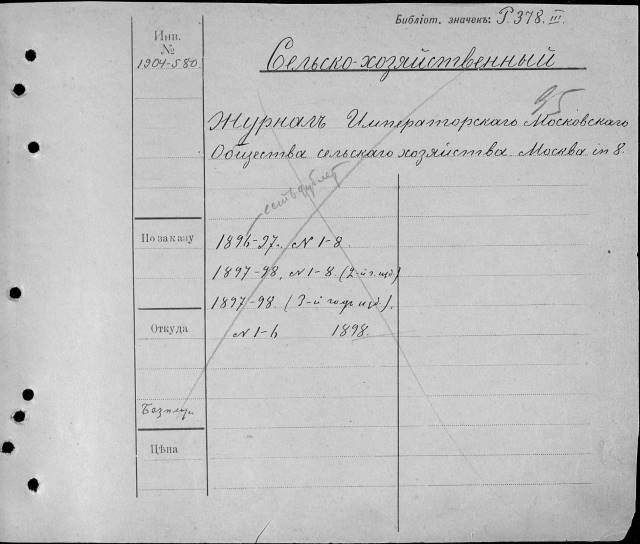 Библіот. значекъ: P. 378. III.
Инв.
№
1904-580
Сельско-хозяйственный
95
Журналъ Императорскаго Московскаго
Общества сельскаго хозяйства. Москва in 8.
есть дублет
По заказу
1896-97. N 1-8
1897-98, N 1-8 (2-й г. изд.)
1897-98 (3-й годъ изд.).
Откуда
N 1-6 1898.
Цѣна